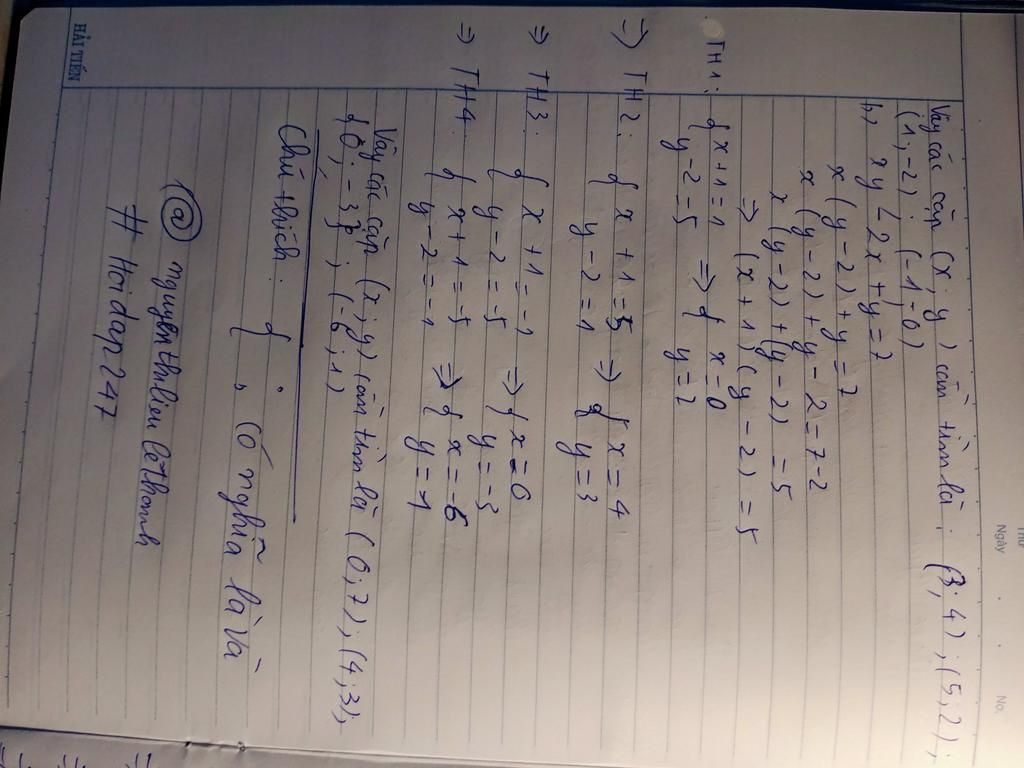 Thứ
Ngày
No.
Vậy các cặp (x; y) cần tìm là: (3; 4); (5; 2);
(1; -2) (-1; 0)
b, xy < 2x + y = 7
x(y-2) + y = 7
x(y-2) + y - 2 = 7-2
x(y-2) + (y-2) = 5
=> (x+1)(y-2) = 5
TH1: { x+1=1 y-2=5 => { x=0 y=7
=> TH2: { x+1=5 y-2=1 => { x=4 y=3
=> TH3: { x+1=-1 y-2=-5 => { x=0 y=-3
=> TH4: { x+1=-5 y-2=-1 => { x=-6 y=1
Vậy các cặp (x; y) cần tìm là (0; 7); (4; 3);
{0; -3}; (-6; 1)
Chú thích: {
{ , có nghĩa là và
@ nguyenthilieulethanh
# Hoidap247
HẢI TIẾN